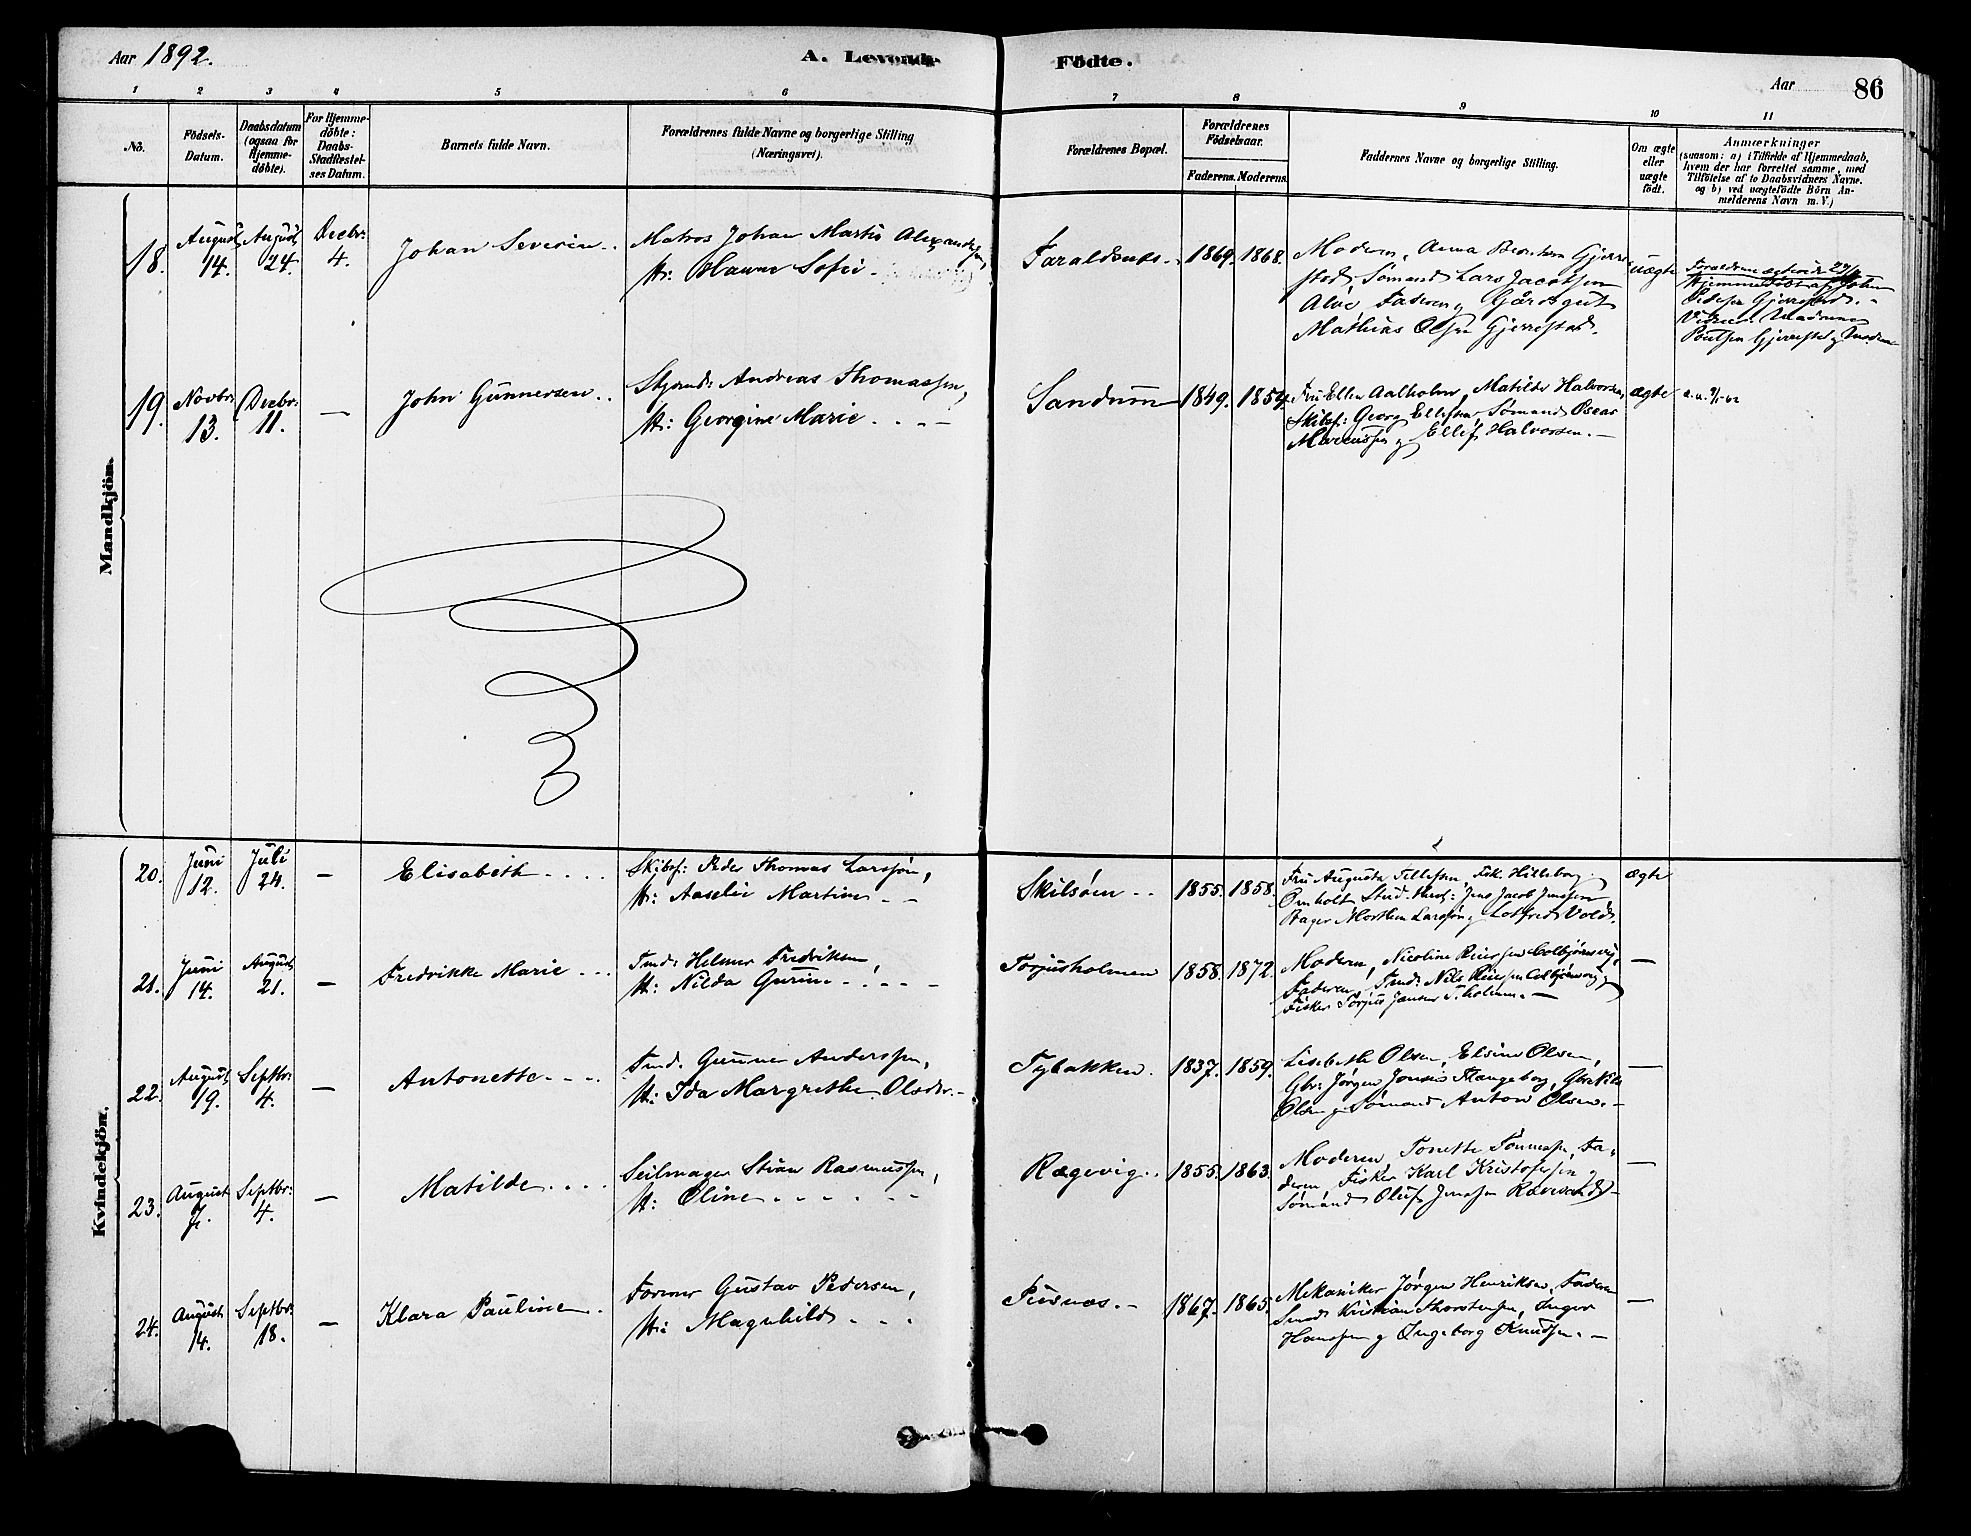 Aar 1892.
A. Levende
Födte.
Aar
86
1 2 3 4 5 6 7 8 9 10 11
No.
Födsels-
Datum.
Daabsdatum
(ogsaa for
Hjemme-
döbte).
For Hjemme-
döbte:
Daabs-
Stadfæstel-
ses Datum.
Barnets fulde Navn.
Forældrenes fulde Navne og borgerlige Stilling
(Næringsvei).
Forældrenes Bopæl.
Forældrenes
Födselsaar.
Faderens. Moderens.
Faddernes Navne og borgerlige Stilling.
Om ægte
eller
uægte
födt.
Anmærkninger
(saasom: a) i Tilfælde af Hjemmedaab,
hvem der har forrettet samme, med
Tilföielse af to Daabsvidners Navne.
og b) ved uægtefödte Börn An-
melderens Navn m. V.)
Mandkjön.
18.
August
14.
August
24.
Decbr:
4.
Johan Severin
Matros Johan Martin
H: Hanne Sofie
1869. 1868.
Moderen, Anna
Sømand Lars Jacobsen
Faderen, Gårdgut
Mathias Olsen Gjerrestad.
uægte
Gjerrestad.
19.
Novbr:
13.
Decbr:
11.
—
John Gunnersen
Andreas Thomassen,
H: Georgine Marie
Sandum
1849. 1854.
Fru Ellen Aalholm, Matilde Halvorsen,
Skibsf: Georg Ellefsen, Sømand Oscar
Marcussen og Ellef Halvorsen. —
ægte
Kvindekjön.
20.
Juni
12.
Juli
24.
—
Elisabeth
Skibsf: Peder Thomas Larssøn,
H: Aaselie Martine
Skilsøen
1855. 1858.
Fru Augusta Tellefsen, Frk. Hilleborg
Omholt Stud. theol: Jens Jacob Jenssen
Bager Morthen Larssøn og Lotfred Vold.
ægte
21.
Juni
14.
August
21.
—
Fredrikke Marie
Tmd: Helmer Fredriksen,
H: Nilda Gurine
Torjusholmen
1858. 1872.
Moderen, Nicoline Reiersen Colbjørnsvig,
Faderen, Tmd: Nils Reiersen Colbjørnsvig og
Fisker Torjus Jansen T.holmen. —
—
22.
August
19.
Septbr:
4.
—
Antonette
Tmd. Gunner Anderssen,
H: Ida Margrethe Olsdr.
Tybakken.
1837. 1859.
Lisebeth Olsen, Elvine Olsen,
Gbr: Jørgen Hangeborg, Gbr: Nils
Olsen og Sømand Anton Olsen. —
—
23.
August
7.
Septbr:
4.
—
Matilde
Seilmager Stian Rasmussen,
H: Oline
Rægevig.
1855. 1863.
Moderen, Tonette Tønnessen, Fa-
deren Fisker Karl Kristofersen og
Sømand Oluf Jenssen
—
24.
August
14.
Septbr:
18.
—
Klara Pauline
Former Gustav Pedersen,
H: Magnhild
Pusnæs. —
1867. 1865.
Mekaniker Jørgen Henriksen, Faderen
Smed Kristian Thorstensen, Inger
Hanssen og Ingeborg Knudsen. —
—